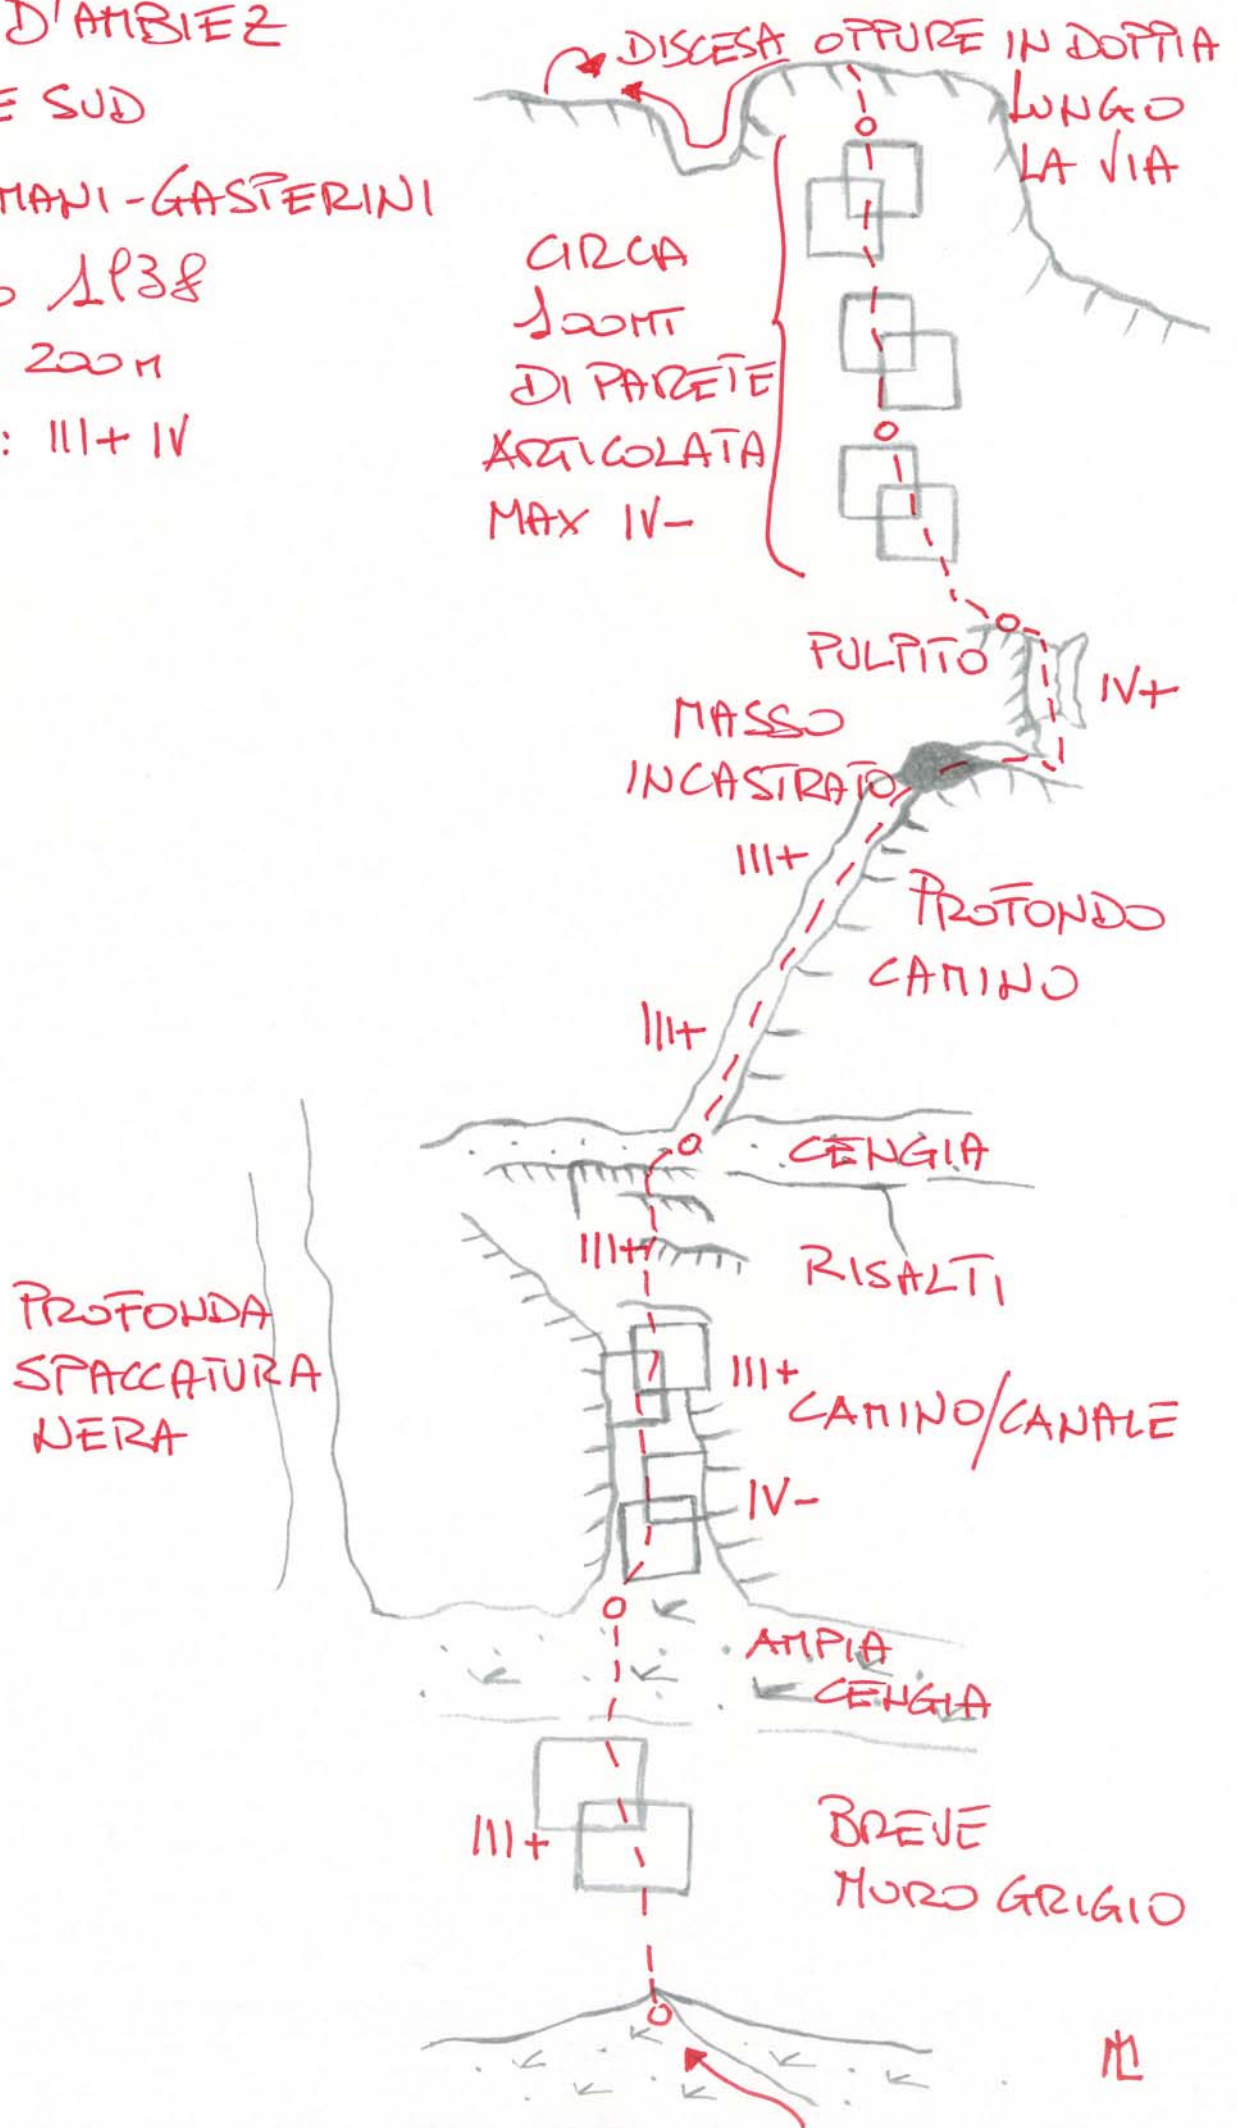 D'AMBIEZ
E SUD
MANI-GASPERINI
O 1938
200M
: III+ IV
DISCESA OPPURE IN DOPPIA
LUNGO
LA VIA
CIRCA
100MT
DI PARETE
ARTICOLATA
MAX IV-
PULPITO
IV+
MASSO
INCASTRATO
III+
PROFONDO
CAMINO
III+
CENGIA
III+
RISALTI
PROFONDA
SPACCATURA
NERA
III+
CAMINO/CANALE
IV-
AMPIA
CENGIA
III+
BREVE
MURO GRIGIO